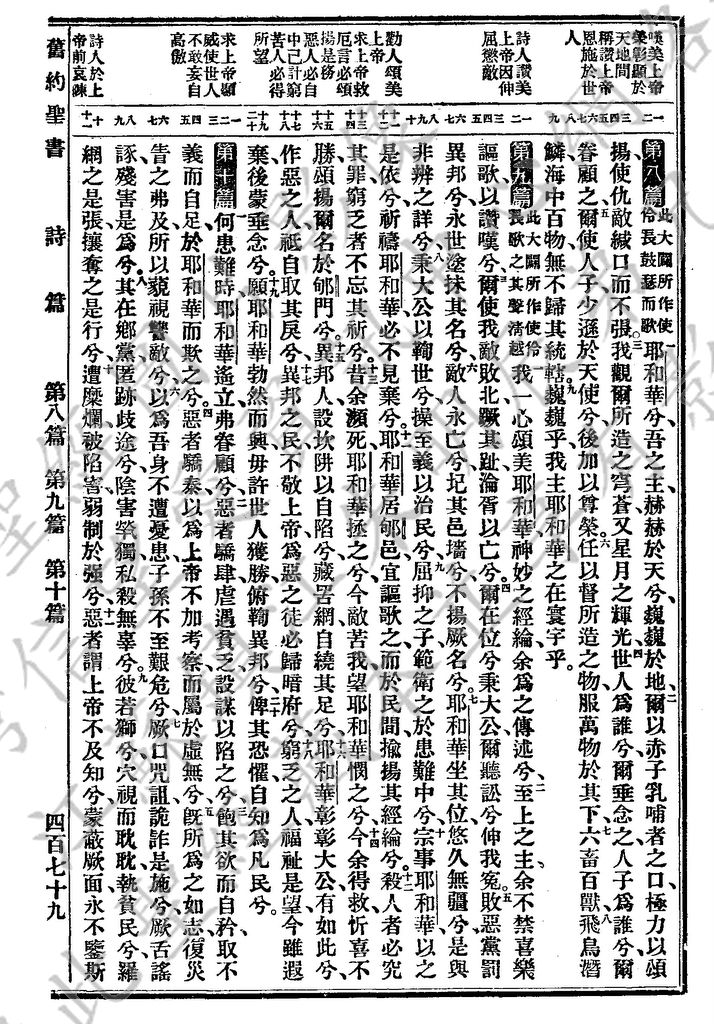 嘆美上帝
榮彰顯於
天地間
稱讚上帝
恩施於世
人
詩人讚美
上帝因伸
屈懲敵
勸人頌美
上帝
求上帝救
厄言必頌
揚是務
惡人必自
中已計窮
苦人必得
所望
求上帝顯
威使世人
不敢妄自
高傲
詩人於上
帝前哀訴
第八篇 此大闢所作使伶長鼓瑟而歌 一耶和華兮吾之主赫赫於天兮巍巍於地二爾以赤子乳哺者之口極力以頌
揚使仇敵緘口而不張三我觀爾所造之穹蒼又星月之輝光四世人為誰兮爾垂念之人子為誰兮爾
眷顧之五爾使人子少遜於天使兮後加以尊榮六任以督所造之物服萬物於其下七六畜百獸八飛鳥潛
鱗海中百物無不歸其統轄九巍巍乎我主耶和華之在寰宇乎
第九篇 此大闢所作使伶長歌之其聲清越 一我一心頌美耶和華神妙之經綸余為之傳述兮二至上之主余不禁喜樂
謳歌以讚嘆兮三爾使我敵敗北蹶其趾淪胥以亡兮四爾在位兮秉大公爾聽訟兮伸我冤五敗惡黨罰
異邦兮永世塗抹其名兮六敵人永亡兮圮其邑墻兮不揚厥名兮七耶和華坐其位悠久無疆兮是與
非辨之詳兮八秉大公以鞫世兮操至義以治民兮九屈抑之子範衛之於患難中兮十宗事耶和華以之
是依兮祈禱耶和華必不見棄兮十一耶和華居郇邑宜謳歌之而於民間揄揚其經綸兮十二殺人者必究
其罪窮乏者不忘其祈兮十三昔余瀕死耶和華拯之兮今敵苦我望耶和華憫之兮十四今余得救忻喜不
勝頌揚爾名於郇門兮十五異邦人設坎阱以自陷兮藏罟網自繞其足兮十六耶和華彰彰大公有如此兮
作惡之人祗自取其戾兮十七異邦之民不敬上帝為惡之徒必歸暗府兮十八窮乏之人福祉是望今雖遐
棄後蒙垂念兮十九願耶和華勃然而興毋許世人獲勝俯鞫異邦兮二十俾其恐懼自知為凡民兮
第十篇 一何患難時耶和華遙立弗眷顧兮二惡者驕肆虐遇貧乏設謀以陷之兮三飽其欲而自矜取不
義而自足於耶和華而欺之兮四惡者驕泰以為上帝不加考察而屬於虛無兮五旣所為之如志復災
眚之弗及所以藐視讐敵兮六以為吾身不遭憂患子孫不至艱危兮七厥口咒詛詭詐是施兮厥舌謠
諑殘害是為兮八其在鄉黨匿跡歧途兮陰害煢獨私殺無辜兮九彼若獅兮穴視而耽耽執貧民兮羅
網之是張攘奪之是行兮十遭糜爛被陷害弱制於强兮十一惡者謂上帝不及知兮蒙蔽厥面永不鑒斯
舊約聖書 詩篇 第八篇 第九篇 第十篇 四百七十九